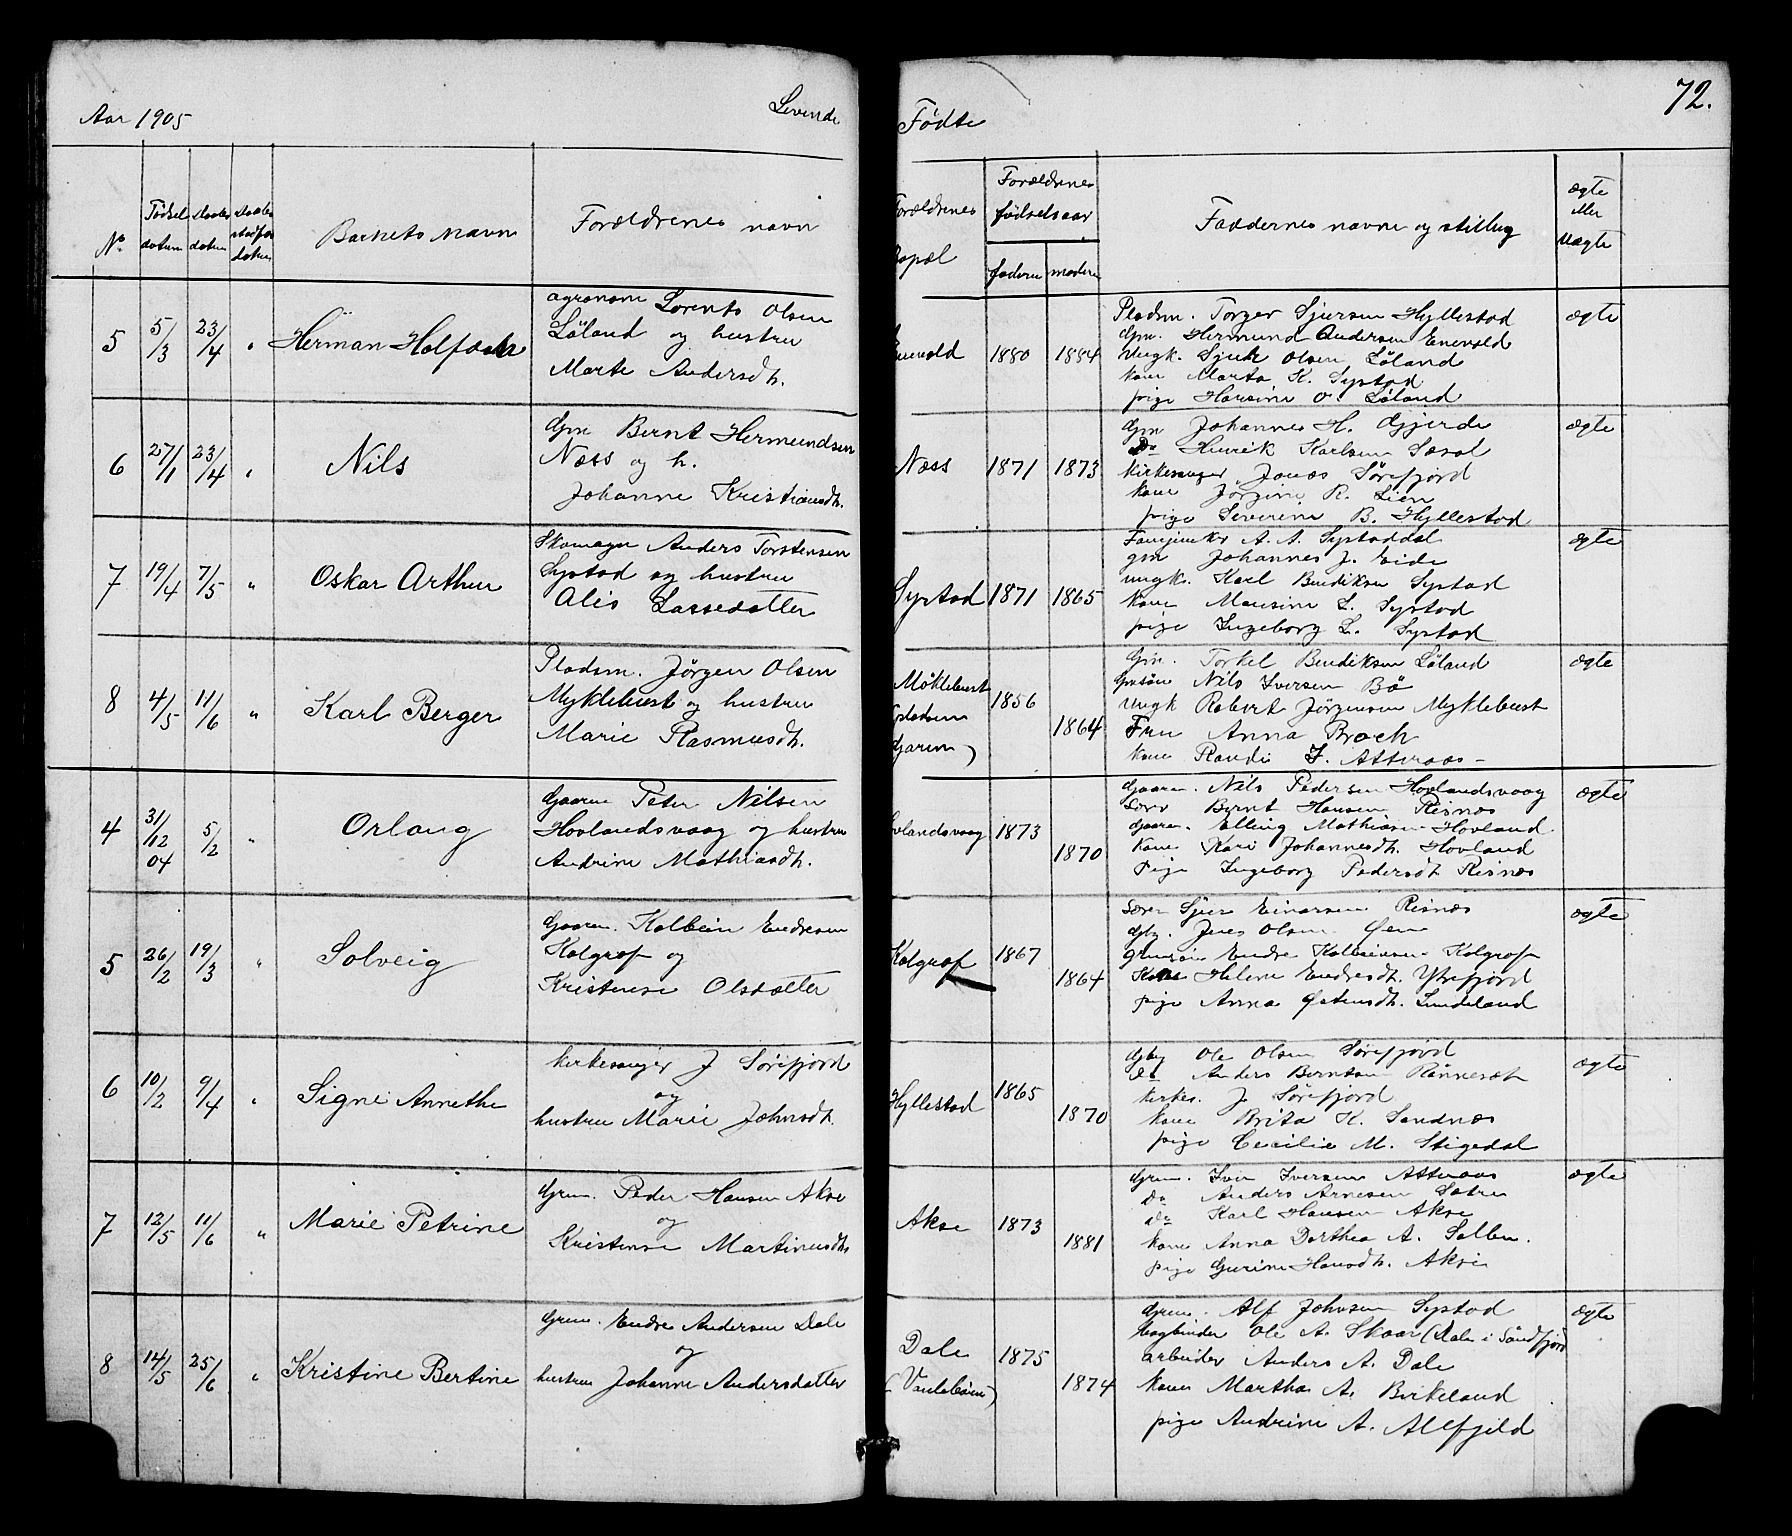 Aar 1905
Levende
Fødte
72.
No
Fødsels datum
Daabs datum
Barnets navn
Forældrenes navn
Forældrenes
Bopæl
Forældrenes
fødselsaar
faderen
moderen
Faddernes navne og stilling
ægte
eller
uægte
5
5/3
23/4
"
Herman
agronom Lorents Olsen
Løland og hustru
Marte Andersdt.
1880
1884
Pladsm. Torger Sjursen Hyllestad
Gm. Hermund Andersen Enevold
Ungk. Sjur Olsen Løland
Kone Marta K. Systad
pige Hansine O. Løland
ægte
6
27/1
23/4
"
Nils
Gm Bernt Hermundsen
Næss og h.
Johanne Kristiansdt.
Næss
1871
1873
Gm Johannes H. Gjerde
Do Henrik Karlsen
Kirkesanger Jonas Sørefjord
Kone Jørgine R. Lien
pige Severine B. Hyllestad
ægte
7
19/4
7/5
"
Oskar Arthur
Skomager Anders Torstensen
Systad og hustru
Alis Lassedatter
Systad
1871
1865
A. A. Systaddal
gm Johannes J. Eide
ungk. Karl Bendiksen Systad
Kone Mansine L. Systad
pige Ingeborg L. Systad
ægte
8
4/5
11/6
"
Karl Berger
Pladsm. Jørgen Olsen
Myklebust og hustru
Marie Rasmusdt.
Møklebust
1856
1864
Gm. Torkel Bendiksen Løland
Nils Iversen Bø
Ungk Robert Jørgensen Myklebust
Fru Anna Broch
Kone Randi I. Atteraas
ægte
4
31/12 04
5/2
"
Orlaug
Gaarm Peter Nilsen
Hovlandsvaag og hustru
Andrine Mathiasdt.
Hovlandsvaag
1873
1870
Gaarm. Nils Pedersen Hovlandsvaag
Bernt Hansen Risnes
Gaarm. Elling Mathiasen Hovland
Kone Kari Johannesdt. Hovland
Pige Ingeborg Pedersdt Risnes
ægte
5
26/2
19/3
"
Solveig
Gaarm. Kolbein Endresen
Kolgrof og
Kristense Olsdatter
Kolgrof
1867
1864
Sjur Einarsen Risnes
Gbr. Jens Olsen Øen
Endre Kolbeinsen Kolgrof
Kone Helene Endresdt. Ytrefjord
pige Anna Østensdt. Sundeland
ægte
6
10/2
9/4
"
Signe Annethe
Kirkesanger J Sørefjord
og
hustru Marie Johnsdt.
Hyllestad
1865
1870
Gbr Ole Olsen Sørefjord
Do Anders Berntsen Rønneset
Kirkes. J. Sørefjord
Kone Brita K. Sandnes
pige Cecilie M. Stigedal
ægte
7
12/5
11/6
"
Marie Petrine
Grm. Peder Hansen Akse
og
Kristense Martinusdt.
Akse
1873
1881
Grm. Iver Iversen Atteraas
Do Anders Arnesen Sætre
Do Karl Hansen Akse
Kone Anna Dorthea A. Solben.
pige Gurine Hansdt. Akse
ægte
8
14/5
25/6
"
Kristine Bertine
Grm. Endre Andersen Dale
og
hustru Johanne Andersdatter
Dale
1875
1874
Grm. Alf Johnsen Systad
Bogbinder Ole A. Skaar (Dale i Søndfjord)
arbeider Anders A. Dale
Kone Martha A. Birkeland
pige Andrine A. Allfjeld
ægte